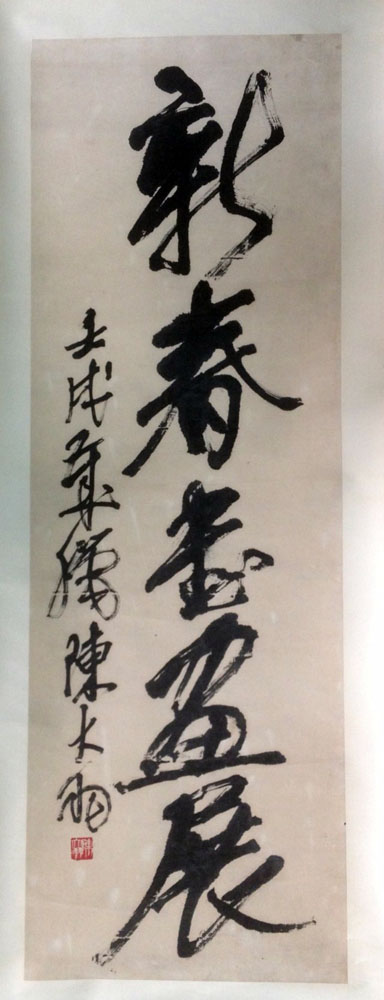 新春書畫展
壬戌歲臘陳大羽